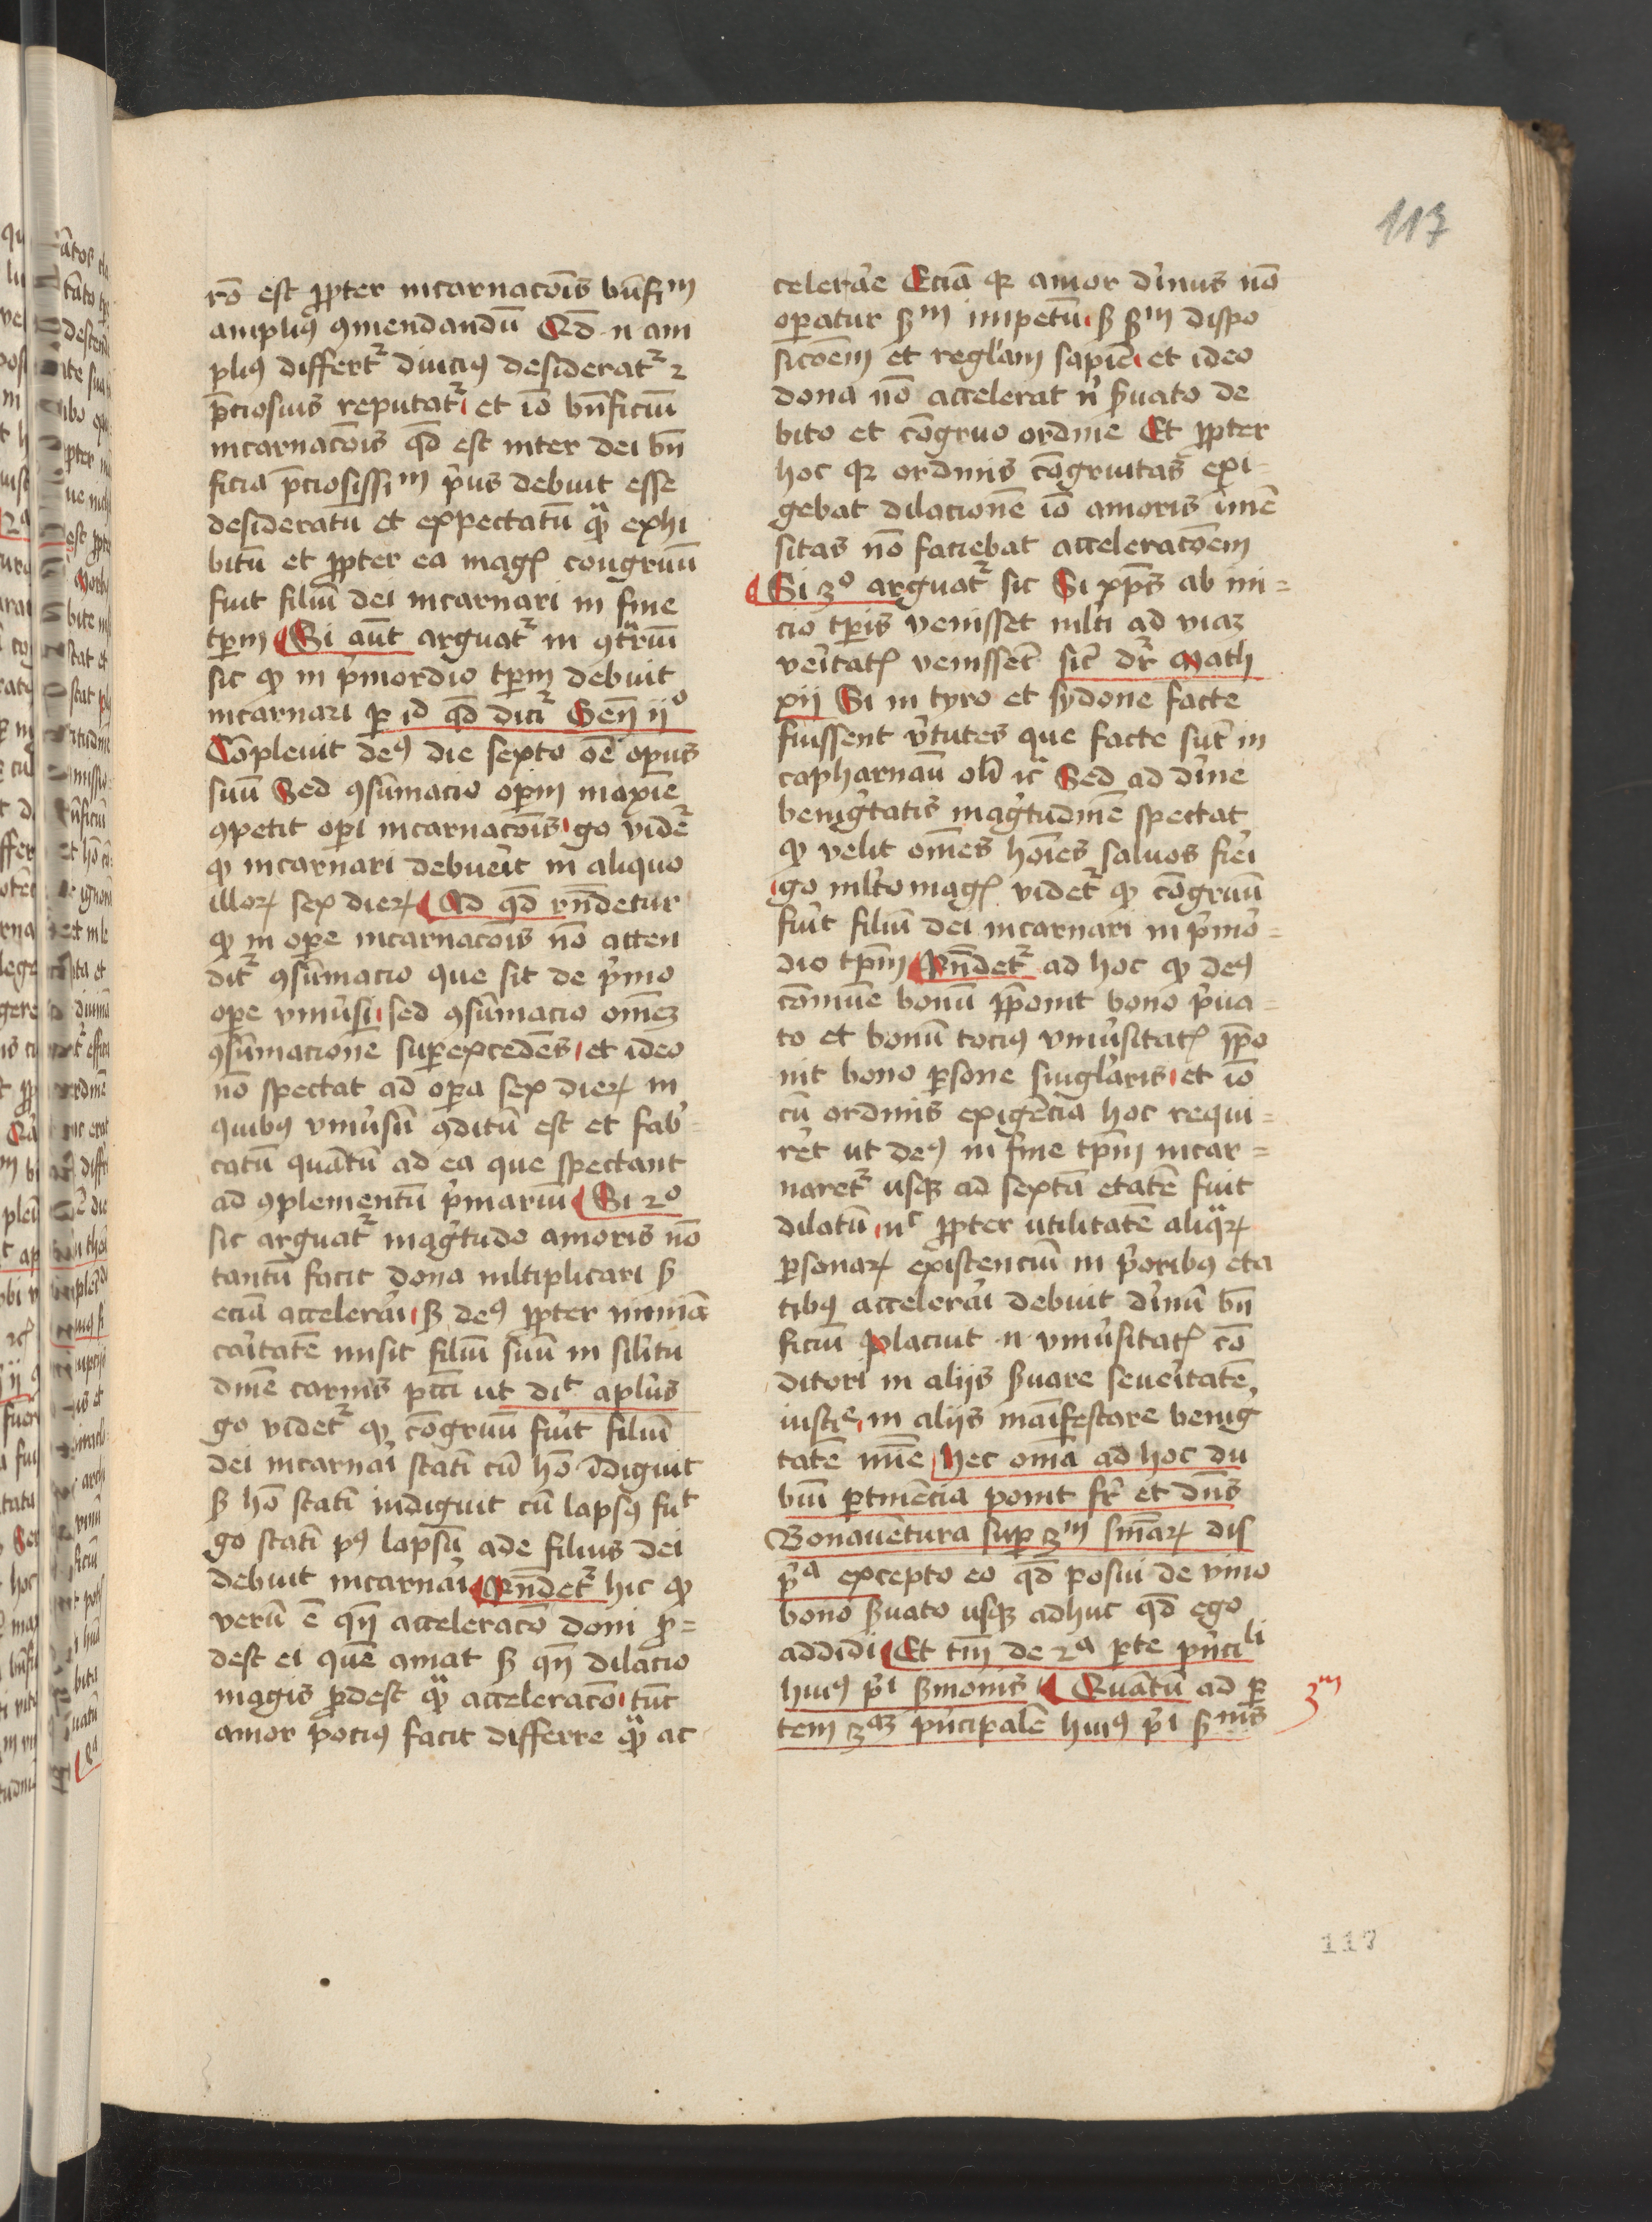 117
rō est ꝓpter incarnacōis bn̄fiᵐ
ampliꝰ ꝯmendandū Qd̄ n am
pliꝰ differtᷣ diuciꝰ desideratᷣ ⁊
p̄ciosius reputatᷣ et iō bn̄ficiū
incarnacōis qd̄ est inter dei bn̄
ficia p̄ciosissiᵐ pͥus debuit esse
desideratū et expectatū qͣ̄ exhi
bitū et ꝓpter ea magꝭ congruū
fuit filiū dei incarnari in fine
tꝑm Si aūt arguatᷣ in ꝯtͣriū
sic ꝙ in pͥmordio tꝑm debuit
incarnari ꝑ id qd̄ dicitᷣ Gen̄ ijº
Compleuit deꝰ die sexto oē opus
suū Sed ꝯsūmacio oꝑm maxīe
ꝯpetit oꝑi incarnacōis gͦ vidēᷣ
ꝙ incarnari debueit in aliquo
illoꝝ sex dieꝝ Ad qd̄ rn̄detur
ꝙ in oꝑe incarnacōis nō atten
ditᷣ ꝯsūmacio que sit de pͥmo
oꝑe vniūsi sed ꝯsūmacio omēꝫ
ꝯsūmacione suꝑexcedēs et ideo
nō spectat ad oꝑa sex dieꝝ in
quibꝰ vniūsū ꝯditū est et fabͥ
catū quātū ad ea que spectant
ad ꝯplementū pͥmariū Si 2º
sic arguatᷣ magͥtudo amoris nō
tantū facit dona ml̄tiplicari sꝫ
eciā acceleraͥi sꝫ deꝰ ꝓpter nimiā
caͥitatē misit filiū suū in sil̄itu
dinē carnis pc̄ci ut diᵗ aplūs
gͦ videtᷣ ꝙ cōgruū fuͥit filiū
dei incarnaͥi statī cū hō īdiguit
sꝫ hō statī indiguit cū lapsꝰ fuᵗ
gͦ statī pꝰ lapsū ade filius dei
debuit incarnaͥi Rn̄detᷣ hic ꝙ
verū ē qn̄ acceleracō doni ꝓ=
dest ei quē amat sꝫ qn̄ dilacio
magis ꝓdest qͣ̄ acceleracō tūc
amor pociꝰ facit differre qͣ̄ ac
celeraͥe Eciā qꝛ amor dīuus nō
oꝑatur sꝫᵐ impetū sꝫ sꝫᵐ dispo
sicōem et regl̄am sapīe et ideo
dona nō accelerat nͥ ẜuato de
bito et cōgruo ordine Et ꝓpter
hoc qꝛ ordinis cōgruitas exi=
gebat dilacionē iō amoris īmē
sitas nō faciebat acceleracōem
Si 3º arguatᷣ sic Si xp̄s ab ini=
cio tꝑis venisset ml̄ti ad viaꝫ
veͥitatꝭ venissēt sic̄ dr̄ Math
xij Si in tyro et sydone facte
fuissent vͥtutes que facte sūt in
capharnaū olī ⁊c̄ Sed ad dīne
benigͥtatis magͥtudinē spectat
ꝙ velit om̄es hōies saluos fieͥi
gͦ ml̄to magꝭ videtᷣ ꝙ cōgruū
fuͥit filiū dei incarnari in pͥmo=
dio tꝑm Rn̄detᷣ ad hoc ꝙ deꝰ
cōmūe bonū p̄ponit bono pͥua=
to et bonū tociꝰ vniūsitatꝭ p̄po
nit bono ꝑsone singl̄aris et iō
cū ordinis exigēcia hoc requi=
rēt ut deꝰ in fine tꝑm incar=
naretᷣ usqꝫ ad sextā etatē fuit
dilatū nᶜ ꝓpter utilitatē aliqͣꝝ
ꝑsonaꝝ existenciū in pͥoribꝰ eta
tibꝰ acceleraͥi debuit dīnū bn̄
ficiū Placuit n vniūsitatꝭ cō
ditori in aliis ẜuare seueͥitatē
iusᵉ in aliis māifestare benig
tatē mīe hec omīa ad hoc du
biū ꝑtinēcia ponit fr̄ et dn̄s
Bonauētura suꝑ 3ᵐ sn̄iaꝝ dis
pͥᵃ excepto eo qd̄ posui de vino
bono ẜuato usqꝫ adhuc qd̄ ego
addidi Et tm̄ de 2ᵃ ꝑte pͥnciˡⁱ
huiꝰ pͥi ẜmonis Quātū ad ꝑ
tem 3ᵃꝫ pͥncipalē huiꝰ pͥi ẜmīs
3ᵐ
117